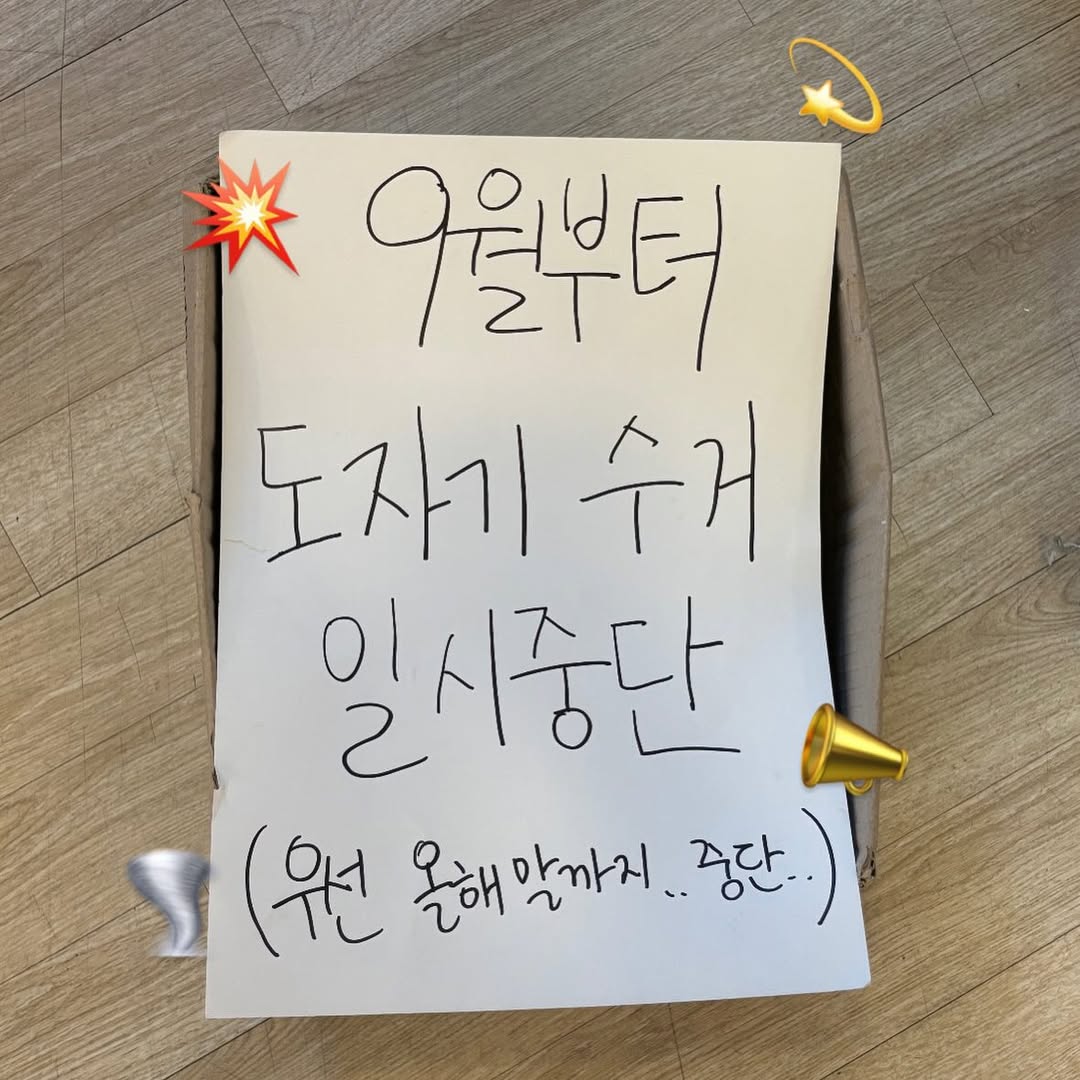 9월부터
도자기 수거
일시중단
(우선 올해말까지.. 중단..)